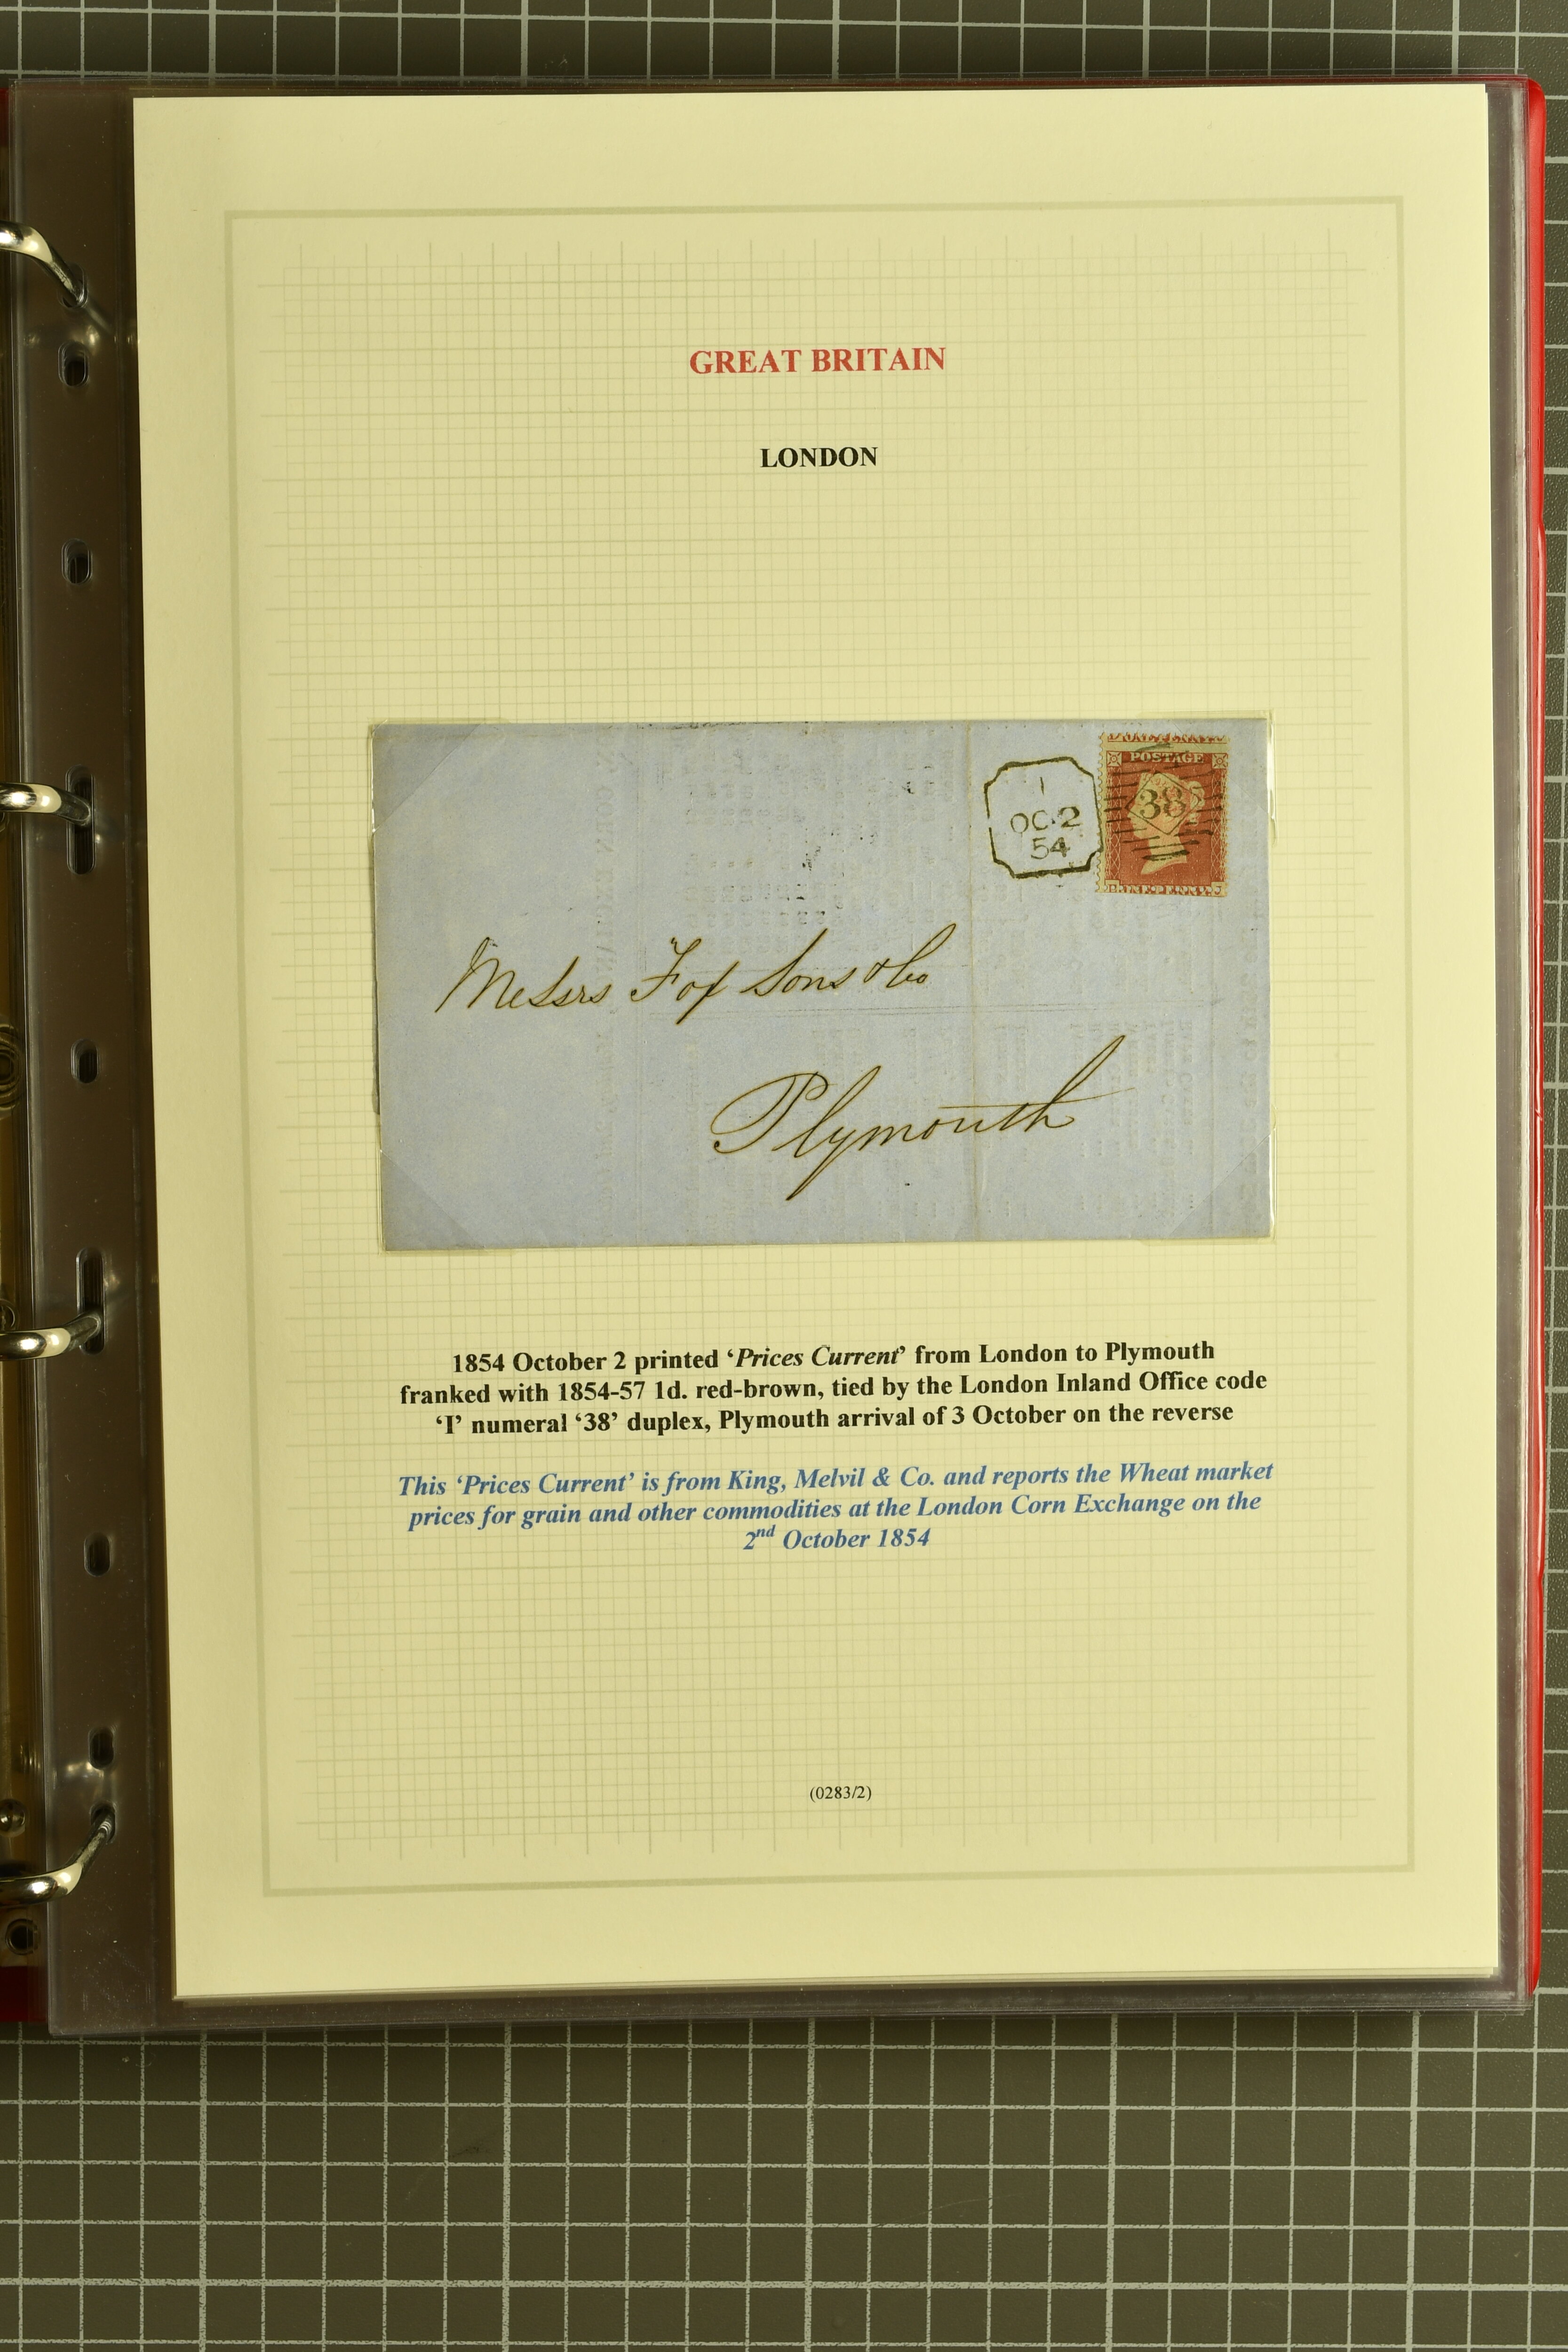 GREAT BRITAIN
LONDON
POSTAGE
38
I
OC 2
54
Messrs Fox Sons & Co
Plymouth
1854 October 2 printed ‘Prices Current’ from London to Plymouth
franked with 1854-57 1d. red-brown, tied by the London Inland Office code
‘I’ numeral ‘38’ duplex, Plymouth arrival of 3 October on the reverse
This ‘Prices Current’ is from King, Melvil & Co. and reports the Wheat market
prices for grain and other commodities at the London Corn Exchange on the
2nd October 1854
(0283/2)